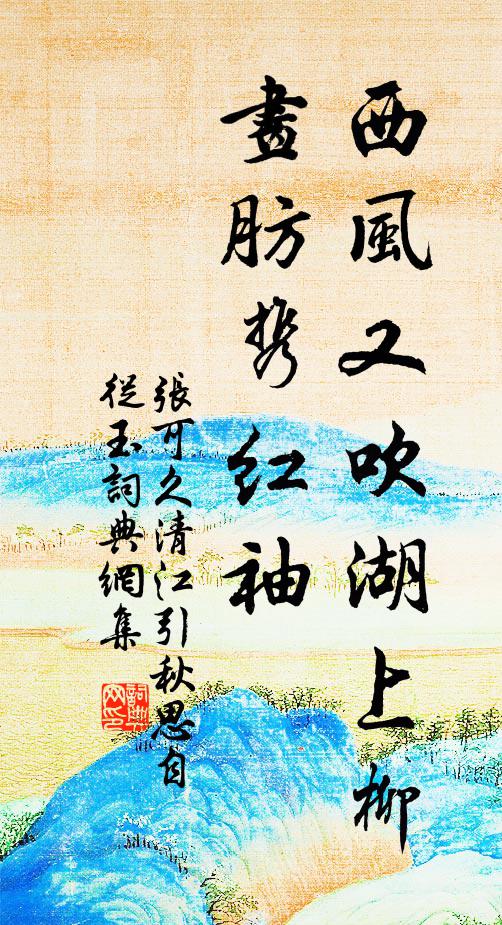 西風又吹湖上柳
畫舫攜紅袖
張可久清江引秋思自
從玉詞典網集
詞典網印